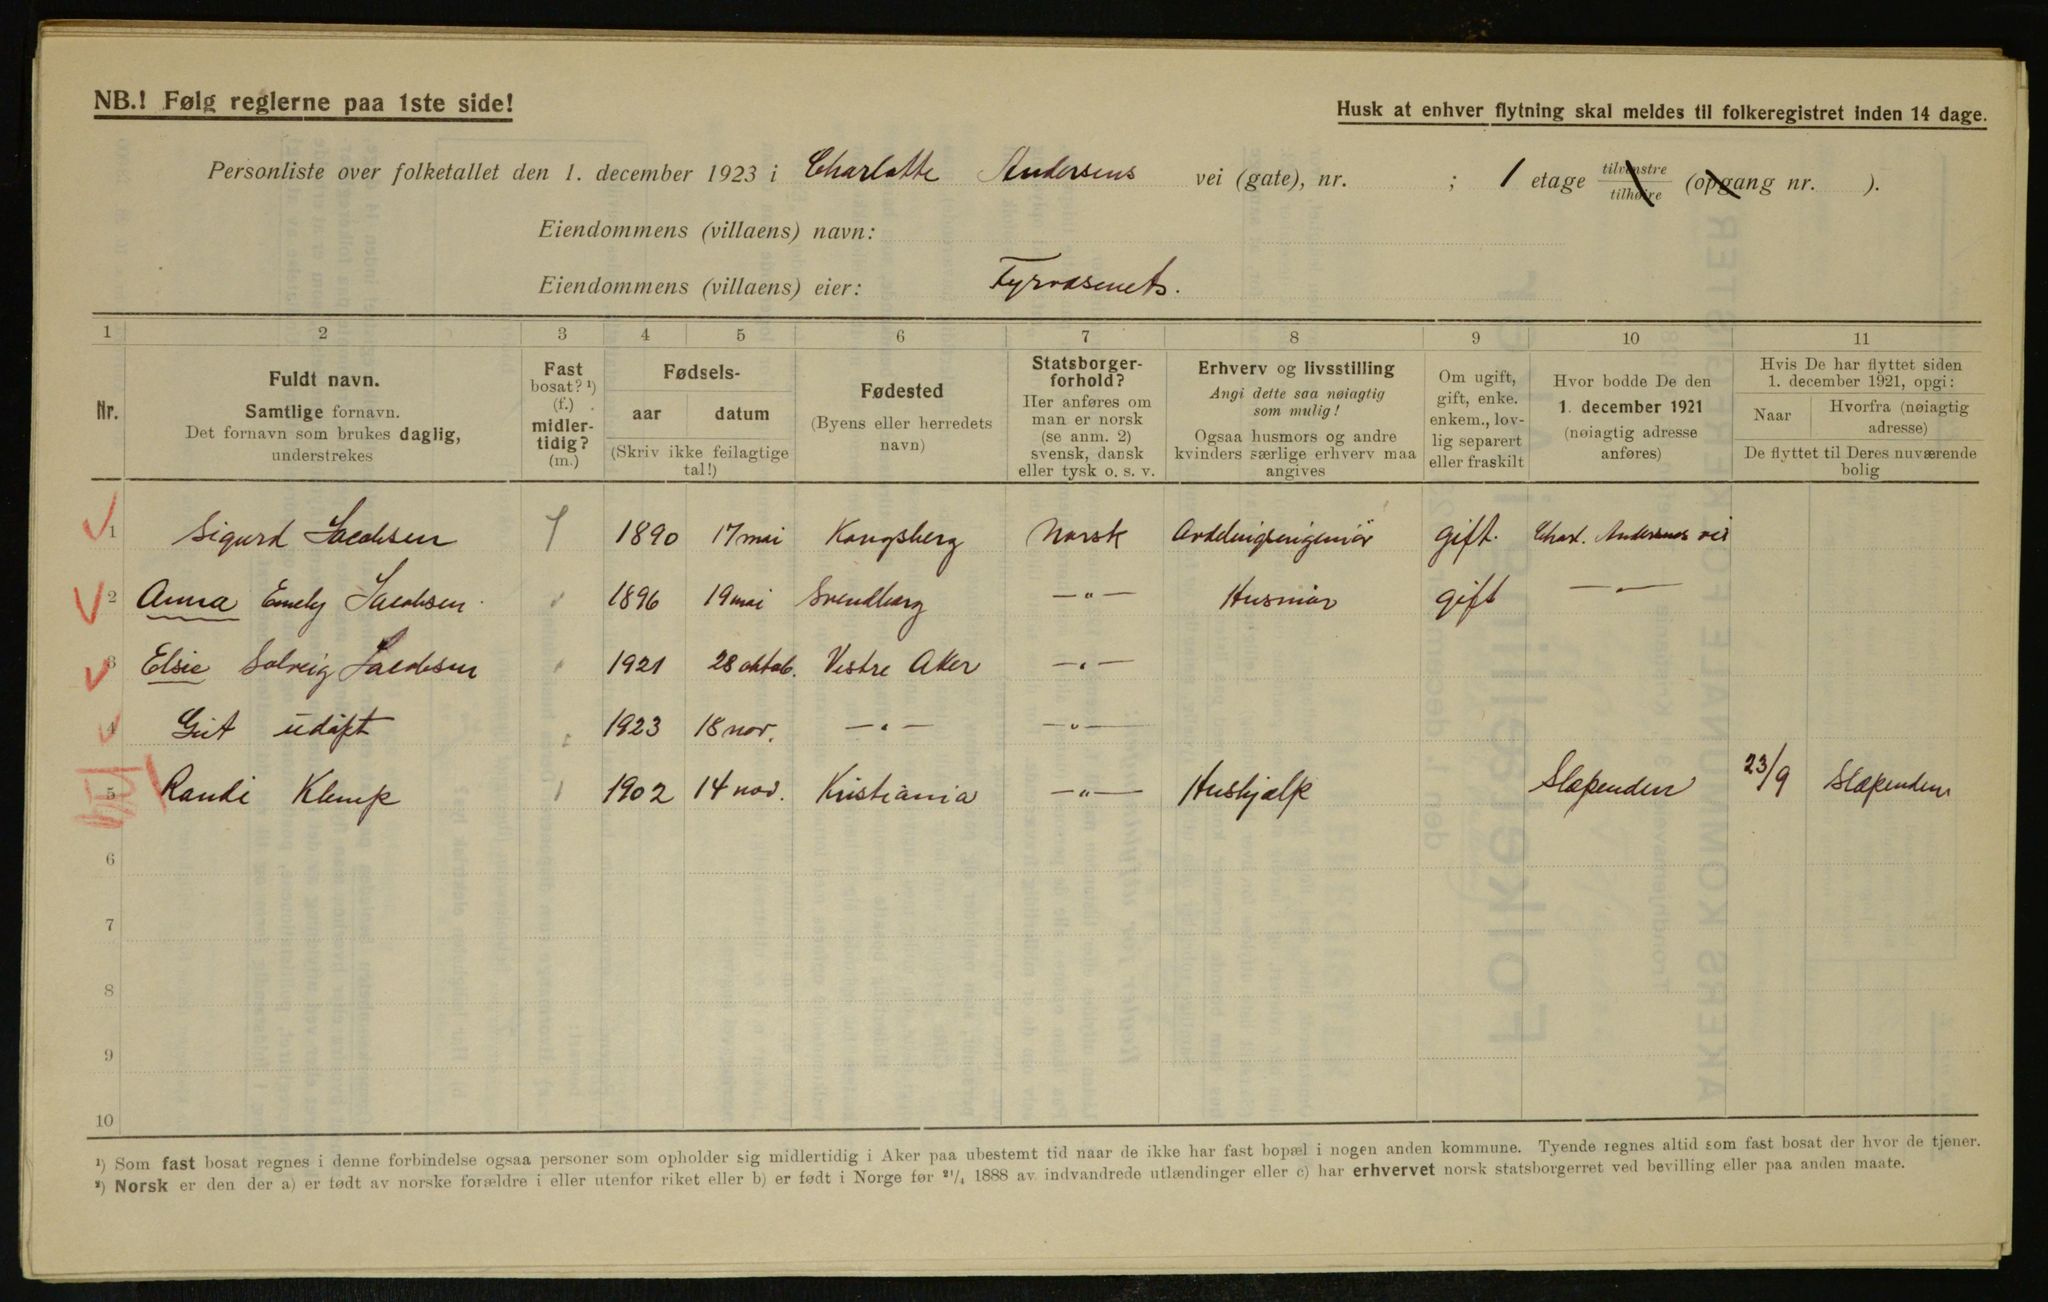 NB.! Følg reglerne paa 1ste side!
Husk at enhver flytning skal meldes til folkeregistret inden 14 dage.
Personliste over folketallet den 1. december 1923 i Charlotte Andersens vei (gate), nr. ; 1 etage tilvenstre tilhøire (opgang nr. ).
Eiendommens (villaens) navn:
Eiendommens (villaens) eier:
1 2 3 4 5 6 7 8 9 10 11
Nr.
Fuldt navn.
Samtlige fornavn.
Det fornavn som brukes daglig,
understrekes
Fast
bosat? ¹)
(f.)
midler-
tidig?
(m.)
Fødsels-
aar datum
(Skriv ikke feilagtige
tal!)
Fødested
(Byens eller herredets
navn)
Statsborger-
forhold?
Her anføres om
man er norsk
(se anm. 2)
svensk, dansk
eller tysk o. s. v.
Erhverv og livsstilling
Angi dette saa nøiagtig
som mulig!
Ogsaa husmors og andre
kvinders særlige erhverv maa
angives
Om ugift,
gift, enke.
enkem., lov-
lig separert
eller fraskilt
Hvor bodde De den
1. december 1921
(nøiagtig adresse
anføres)
Hvis De har flyttet siden
1. december 1921, opgi:
Naar
Hvorfra (nøiagtig
adresse)
De flyttet til Deres nuværende
bolig
1 Sigurd Jacobsen f 1890 17 mai Kongsberg Norsk Avdelingsingeniör gift. Charl. Andersens vei
2 Anna Emely Jacobsen 1896 19 mai Svendborg —"— Husmor gift —"—
3 Elsie Solveig Jacobsen 1921 28 oktob. Vestre Aker —"—
4 Gut udøpt 1923 18 nov. —"— —"—
5 Randi Klemp 1902 14 nov. Kristiania —"— Hushjælp Slæpenden 23/9 Slæpenden
6
7
8
9
10
¹) Som fast bosat regnes i denne forbindelse ogsaa personer som opholder sig midlertidig i Aker paa ubestemt tid naar de ikke har fast bopæl i nogen anden kommune. Tyende regnes altid som fast bosat der hvor de tjener.
²) Norsk er den der a) er født av norske forældre i eller utenfor riket eller b) er født i Norge før ²¹/₄ 1888 av indvandrede utlændinger eller c) har erhvervet norsk statsborgerret ved bevilling eller paa anden maate.